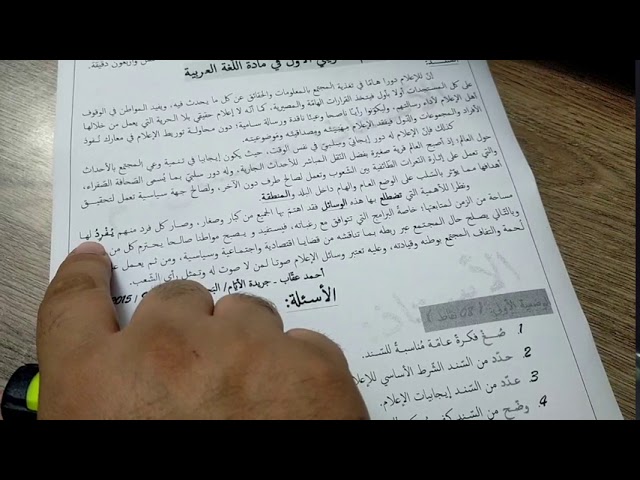 الأول في مادة اللغة العربية
إنّ للإعلام دورا هامّا في تغذية المجتمع بالمعلومات والحقائق عن كل ما يحدث فيه، ويفيد المواطن في الوقوف
على كل المستجدات أولا بأول فيتخذ القرارات الهامّة والمصيرية. كما أنّه لا إعلام حقيقي بلا الحرية التي يعمل من خلالها
أهل الإعلام لأداء رسالتهم، وليكونوا رأيا ناصحا وعينا ناقدة ورسالة سامية؛ دون محاولة توريط الإعلام في معارك لنفوذ
الأفراد والمجموعات والدّول فيفقد الإعلام مهنيته ومصداقيته وموضوعيته.
كذلك فإنّ الإعلام له دور إيجابيّ وسلبيّ في نفس الوقت، حيث يكون إيجابيا في تنمية وعي المجتمع بالأحداث
حول العالم؛ إذ أصبح العالم قرية صغيرة بفضل النّقل المباشر للأحداث الجارية، وله دور سلبيّ بما يُسمى الصّحافة الصّفراء،
والتي تعمل على إثارة النّعرات الطّائفية بين الشّعوب وتعمل لصالح طرف دون الآخر، ولصالح جهة سياسية تعمل لتحقيق
أهدافها مما يؤثر بالسّلب على الوضع العام والهام داخل البلد والمنطقة.
ونظرا للأهمية التي تضطلع بها هذه الوسائل فقد اهتمّ بها الجميع من كبار وصغار، وصار كل فرد منهم يُفْرِدُ لها
مساحة من الزمن لمتابعتها؛ خاصة البرامج التي تتوافق مع رغباته، فيستفيد و يصبح مواطنا صالحا يحترم كل من
وبالتالي يصلح حال المجتمع عبر ربطه بما تناقشه من قضايا اقتصادية واجتماعية وسياسية، ومن ثم يعمل على
لحمة والتفاف المجتمع بوطنه وقيادته، وعليه تعتبر وسائل الإعلام صوتا لمن لا صوت له وتمثل رأي الشّعب.
أحمد عقاب - جريدة الأيام/
2015
الأسئلة:
1 صُغْ فكرة عامّة مُناسبةً للسّند.
2 حدّد من السّند الشّرط الأساسي للإعلا
3 عدّد من السّند إيجابيات الإعلام.
4 وضّح من السّند